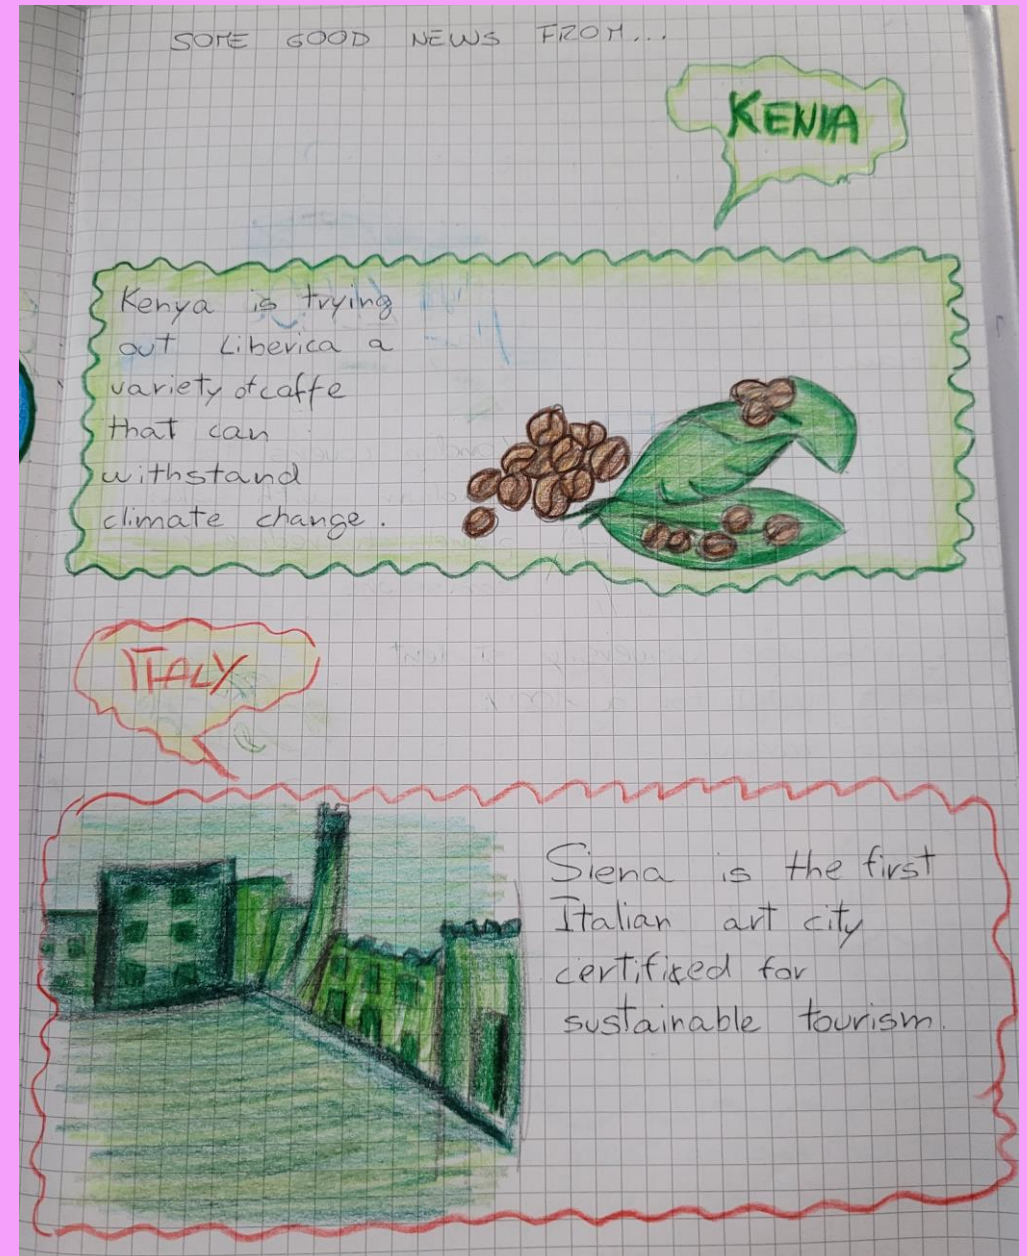 SOME GOOD NEWS FROM...
KENIA
Kenya is trying
out Liberica a
variety of caffe
that can
withstand
climate change.
ITALY
Siena is the first
Italian art city
certified for
sustainable tourism.